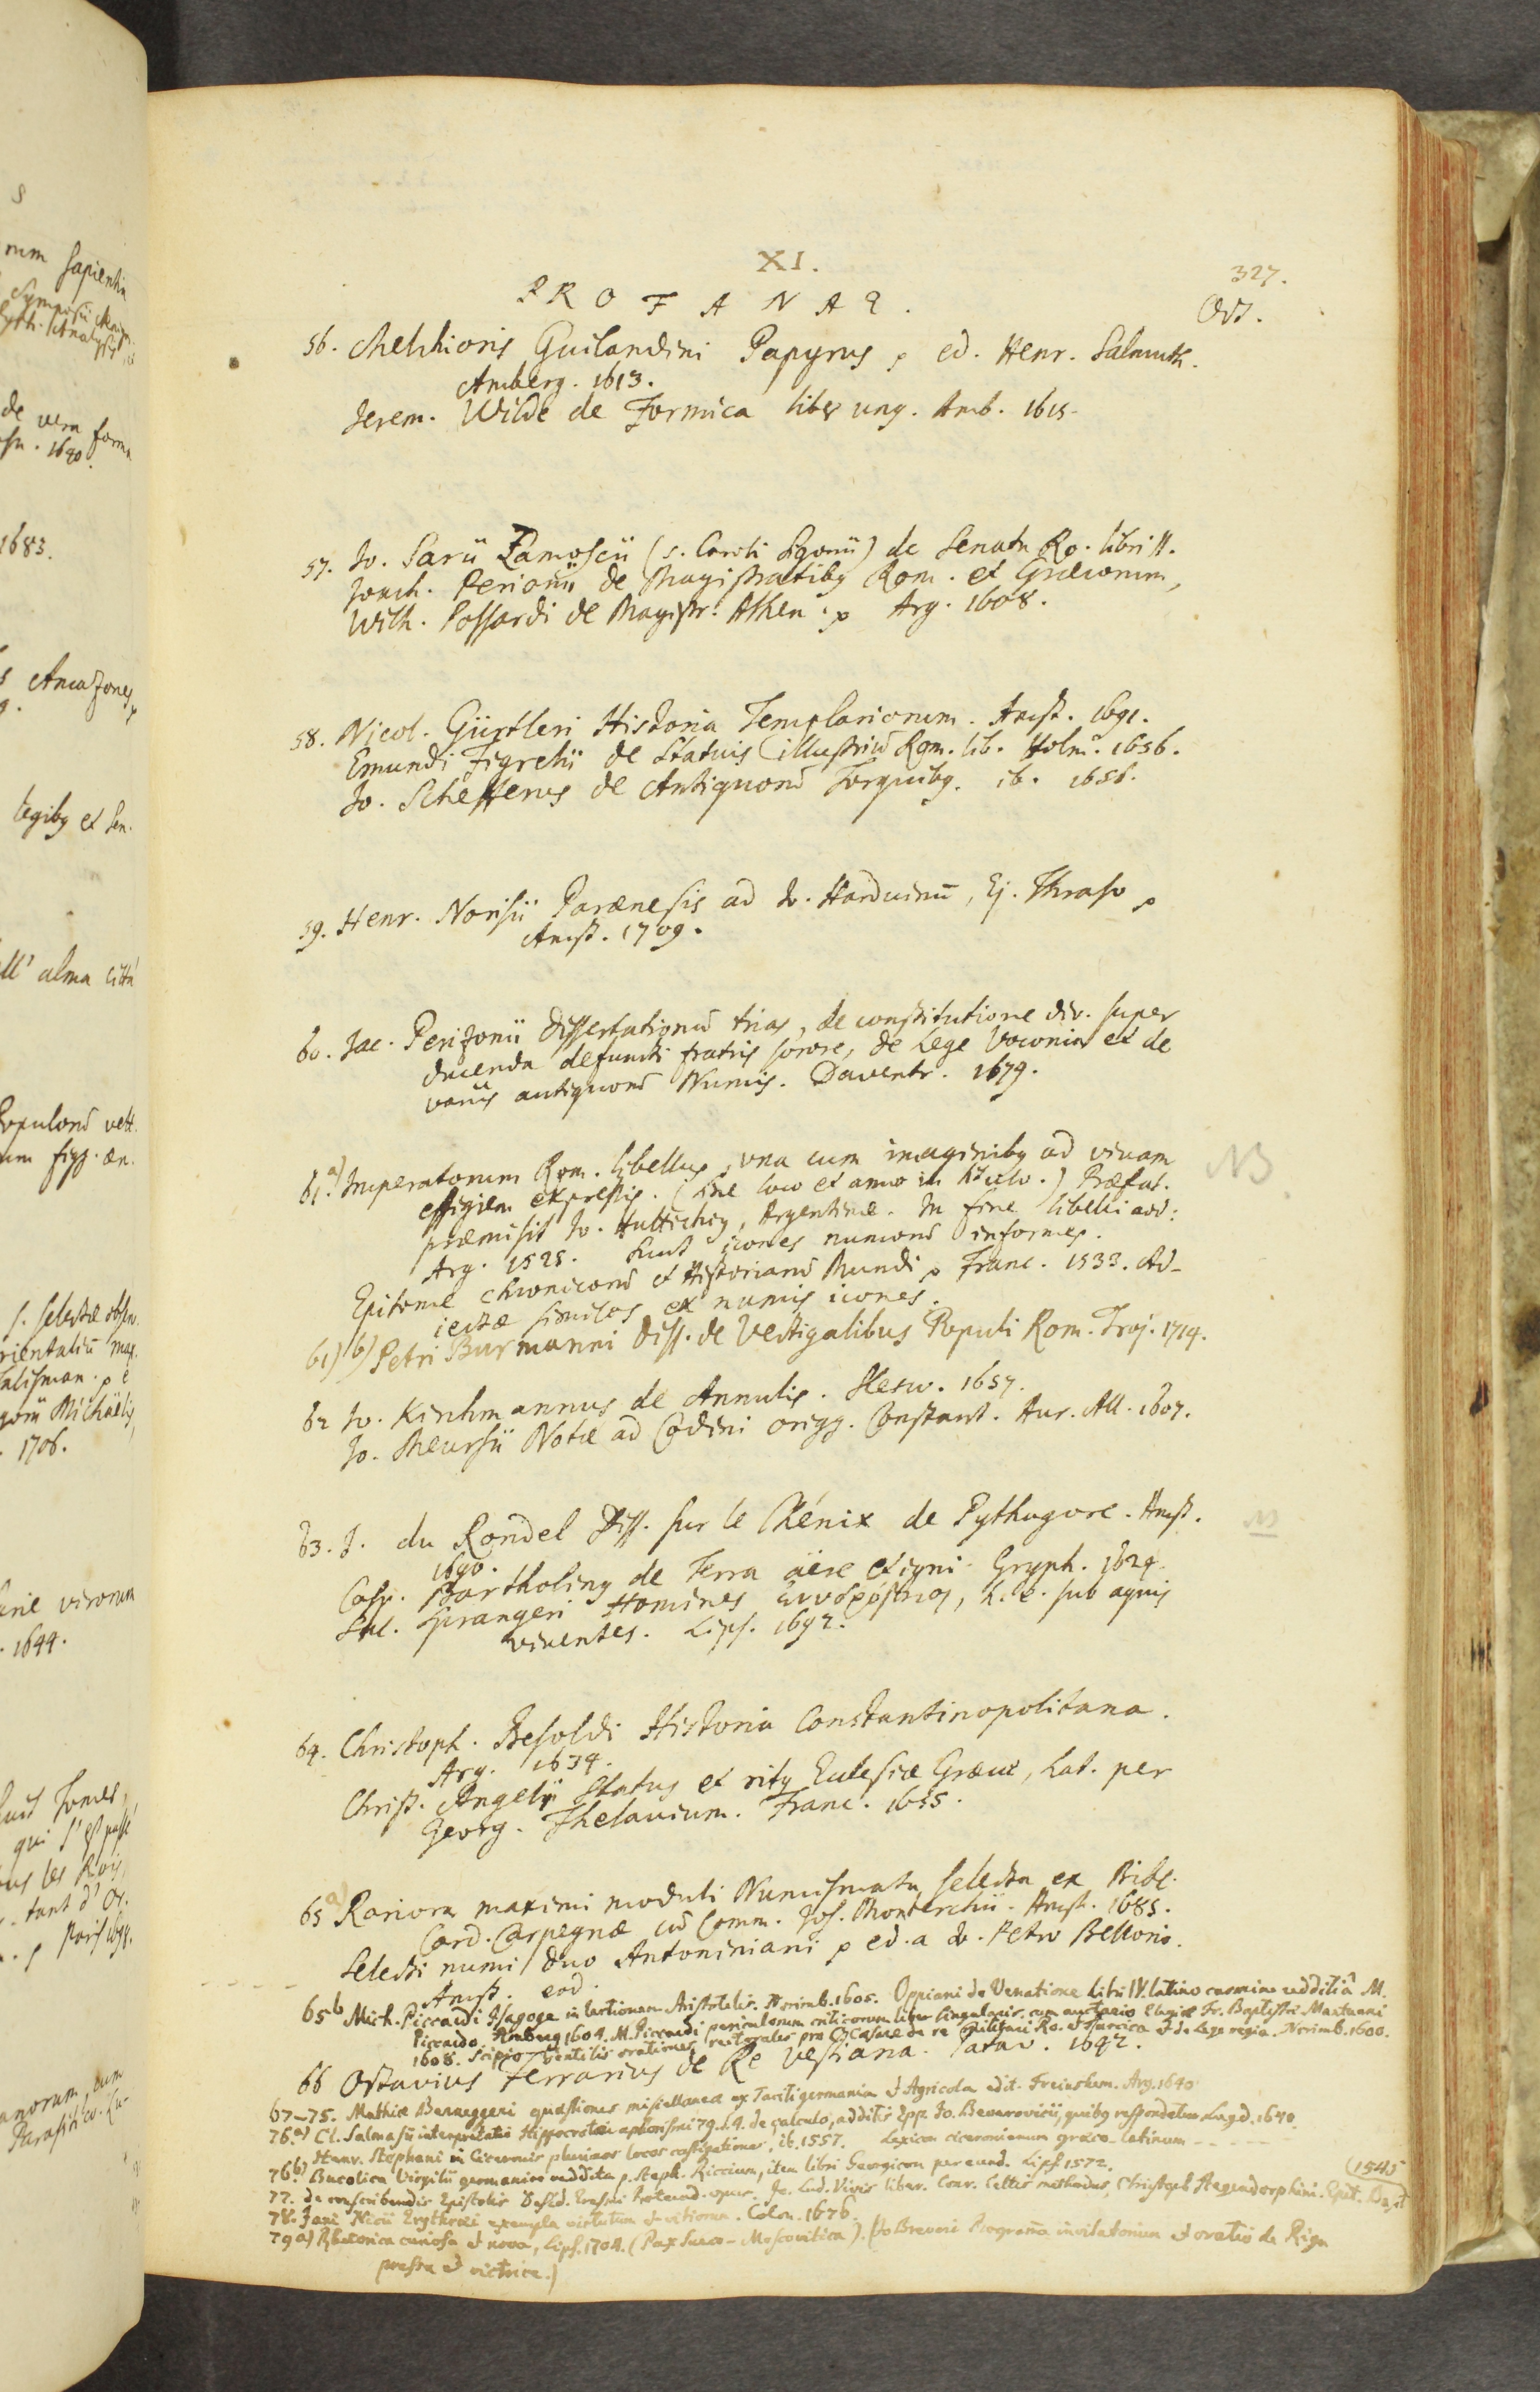 XI.
327.
PROFANAE.
Oct.
56. Melchioris Guilandini Papyrus, ed. Henr. Salmuth.
Amberg. 1613.
Jerem. Wilde de Formica liber unq. Amb. 1615.
57. Jo. Sarii Zamoscii (s. Caroli Sigonii) de Senatu Ro. libri II.
Joach. Perionii de Magistratibq Rom. et Græcorum,
Wilh. Possardi de Magistr. Athen. Arg. 1608.
58. Nicol. Gürtleri Historia Templariorum. Amst. 1691.
Emundi Figrelii de Statuis illustriũ Rom. lib. Holm. 1656.
Jo. Schefferus de Antiquorũ Torquibq. ib. 1656.
59. Henr. Norisii Parænesis ad Jo. Harduinũ, Ej. Thraso
Amst. 1709.
60. Jac. Perizonii Dissertationũ trias, de constitutione div. super
ducenda defuncti fratris sorore, de Lege Voconia et de
variis antiquorũ Numis. Daventr. 1679.
61.a) Imperatorum Rom. libellus, vna cum imaginibq ad vivam
effigiem expressis. (sine loco et anno in titulo.) Præfat.
præmisit Jo. Huttichiq, Argentinæ. In fine libelli add:
Arg. 1525. Sunt icones numorũ informes.
Epitome chronicorũ et Historiarũ Mundi Franc. 1533. Ad-
iectæ similes ex numis icones.
NB.
61) b) Petri Burmanni Diss. de Vectigalibus Populi Rom. Traj. 1714.
62 Jo. Kirchmannus de Annulis. Slesw. 1657.
Jo. Meursii Notæ ad Codini origg. Constant. Aur. All. 1607.
63. J. du Rondel Diss. sur le Chénix de Pythagore. Amst.
1690.
Casp. Bartholinq de Terra aëre et igni. Gryph. 1624.
Sal. Sprangeri Homines , h. e. sub aquis
viventes. Lips. 1692.
64. Christoph. Besoldi Historia Constantinopolitana.
Arg. 1634.
Christ. Angeli Status et ritq Ecclesiæ Græcæ, Lat. per
Georg. Fhelavium. Franc. 1655.
65 a) Rariora maximi moduli Numismata selecta ex Bibl.
Card. Carpegnæ cũ Comm. Jos. Monterchii. Amst. 1685.
Selecti numi duo Antoniniani ed. a Jo. Petro Bellorio.
Amst. eod.
65 b Mich. Piccardi Isagoge in lectionem Aristotelis. Norimb. 1605. Oppiani de Venatione Libri IV. latino carmine redditi a M.
Piccardo. Amberg 1604. M. Piccardi periculorum criticorum liber singularis. cum auctario Elogiæ Fr. Baptistæ Mantuani
1608. Scipio Gentilis orationes rectorales pro C. Cæsare de re militari Ro. et Turcica et de Lege regia. Norimb. 1600.
66 Octavius Ferrarius de Re Vestiaria. Patav. 1642.
67–75. Mathiæ Berneggeri quæstiones miscellaneæ ex Taciti germania et Agricola edit. Freinshem. Arg. 1640.
76. a) Cl. Salmasii interpretatio Hippocratei aphorismi 79. l. 4. de calculo, additis Epp. Jo. Beverovicii, quibq respondetur. Lugd. 1640.
Henr. Stephani in Ciceronis plurimos locos castigationes, ib. 1557. Lexicon ciceronianum græco-latinum
76 b) Bucolica Virgilii germanice reddita p. Steph. Riccium, item libri Georgicon per eund. Lips. 1572. (1545
77. de conscribendis Epistolis Desid. Erasmi Roterod. opus. Jo. Lud. Vivis liber. Conr. Celtis methodus, Christoph Hegendorphini. Epit.
78. Jani Nicii Erythræi exempla virtutum et vitiorum. Colon. 1676.
79 a) Rhetorica curiosa et nova, Lips. 1704. (Pax Sueco-Moscovitica). (Jo Breveri Programa invitatorium et oratio de Riga
pressa et victrice.)